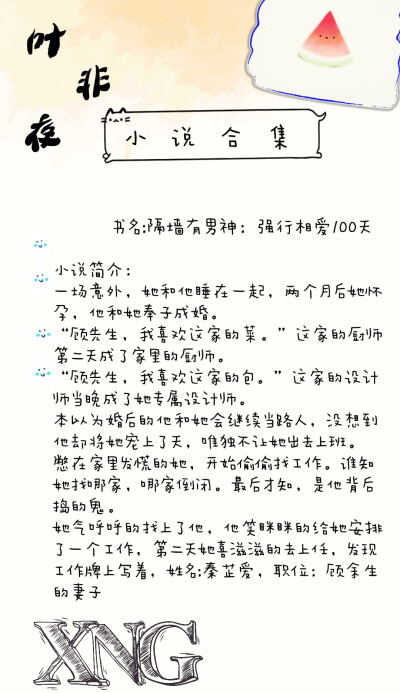 叶非夜
小说合集
书名:隔墙有男神：强行相爱100天
小说简介：
一场意外，她和他睡在一起，两个月后她怀
孕，他和她奉子成婚。
“顾先生，我喜欢这家的菜。”这家的厨师
第二天成了家里的厨师。
“顾先生，我喜欢这家的包。”这家的设计
师当晚成了她专属设计师。
本以为婚后的他和她会继续当路人，没想到
他却将她宠上了天，唯独不让她出去上班。
憋在家里发慌的她，开始偷偷找工作。谁知
她找哪家，哪家倒闭。最后才知，是他背后
捣的鬼。
她气呼呼的找上了他，他笑眯眯的给她安排
了一个工作，第二天她喜滋滋的去上任，发现
工作牌上写着，姓名:秦芷爱，职位：顾余生
的妻子
XNG